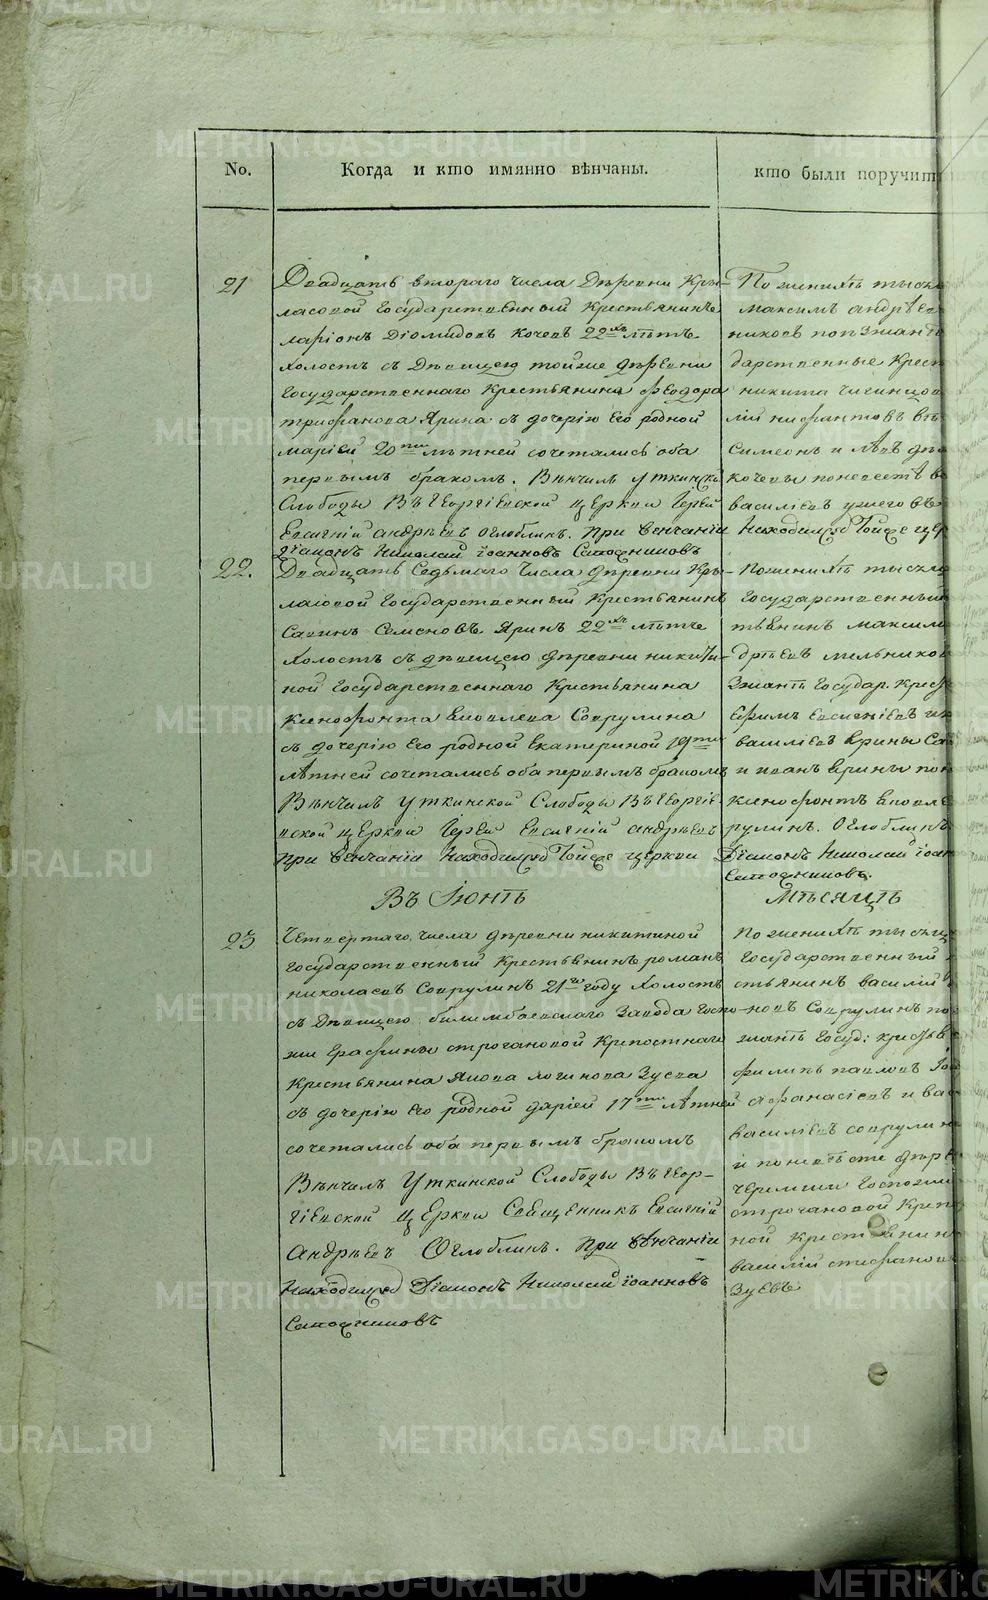 No.
Когда и кто имянно вѣнчаны.
кто были поручит
21
Двадцать втораго числа Деревни Кры-
ласовой Государственный Крестьянинъ
ларіонъ Діомидовъ Кочевъ 22хъ лѣтъ
холостъ съ Дѣвицею тойже деревни
Государственнаго Крестьянина Федора
трифанова Ярина съ дочерію его родной
маріей 20ти лѣтней сочетались оба
первымъ бракомъ. Вѣнчалъ Уткинской
Слободы Въ Георгіевской церкви Іерей
Евсигній андрѣевъ Оглоблинъ. при венчаніи
Діаконъ Николай іоанновъ Сапожниковъ
По женихѣ тысяц
Максимъ андрѣев
никовъ поезжан
дарственные Крест
никита
лій нифантовъ
Симеонъ и левъ
кочевы по невестѣ
василіевъ
находился той же цер
22.
Двадцать Седьмаго Числа деревни Кры-
ласовой Государственный Крестьянинъ
Савинъ Семеновъ Яринъ 22хъ лѣтъ
Холостъ съ дѣвицею деревни никити-
ной Государственнаго Крестьянина
Ксенофонта Яковлева Соврулина
съ дочерію его родной Екатериной 19ти
лѣтней сочетались оба первымъ бракомъ
Вѣнчалъ Уткинской Слободы Въ Георгіе-
вской церкви Іерей Евсигній андрѣевъ
при венчаніи находился той же церкви Діаконъ Николай іоан
Сапожниковъ.
По женихѣ тысяц
Государственный
тьянинъ максим
дрѣевъ мельников
Зжанѣ Государ. Крес
Ефимъ Евсигніевъ
василіевъ Ярины Са
и иванъ Ярины по не
ксенофонтъ Яковле
рулинъ. Оглоблинъ
Въ Іюнѣ Мѣсяцѣ
23
Четвертаго числа деревни никитиной
государственный Крестьянинъ романъ
николаевъ Соврулинъ 21го году Холостъ
съ Дѣвицею билимбаевскаго Завода Госпо-
жи Графини строгановой Крепостнаго
Крестьянина Якова логинова Зуева
съ дочерію его родной даріей 17ти лѣтней
сочетались оба первымъ бракомъ
Вѣнчалъ Уткинской Слободы Въ Геор-
гіевской церкви Священникъ Евсигній
Андрѣевъ Оглоблинъ. при вѣнчаніи
Находился Діаконъ Николай іоанновъ
Сапожниковъ
По женихѣ тысяц
Государственный
стьянинъ василій
новъ Соврулинъ по
зжанѣ Госуд: крестьян
филипъ павловъ
афанасіевъ и ва
василіевъ соврулин
и по невѣсте дере
черемши Госпожи
строгановой Креп
ной крестьянин
василій стефанов
Зуевъ
METRIKI.GASO-URAL.RU